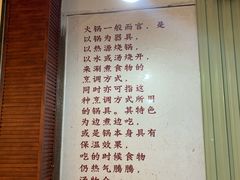 火锅一般而言，是
以锅为器具，
以热源烧锅，
以水或汤烧开，
来涮煮食物的
烹调方式，
同时亦可指这
种烹调方式所用
的锅具。其特色
为边煮边吃，
或是锅本身具有
保温效果，
吃的时候食物
仍热气腾腾，